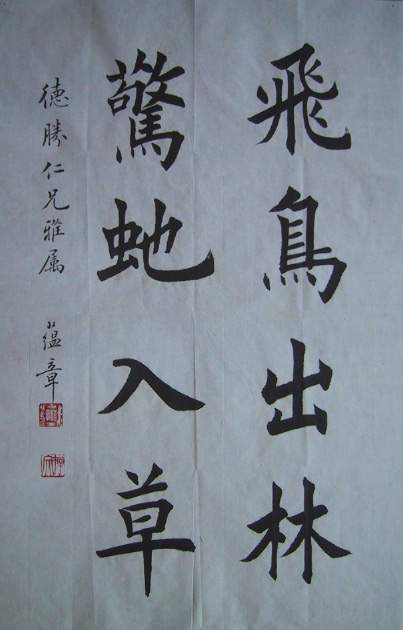 飛鳥出林
驚虵入草
德勝仁兄雅属 蕴章